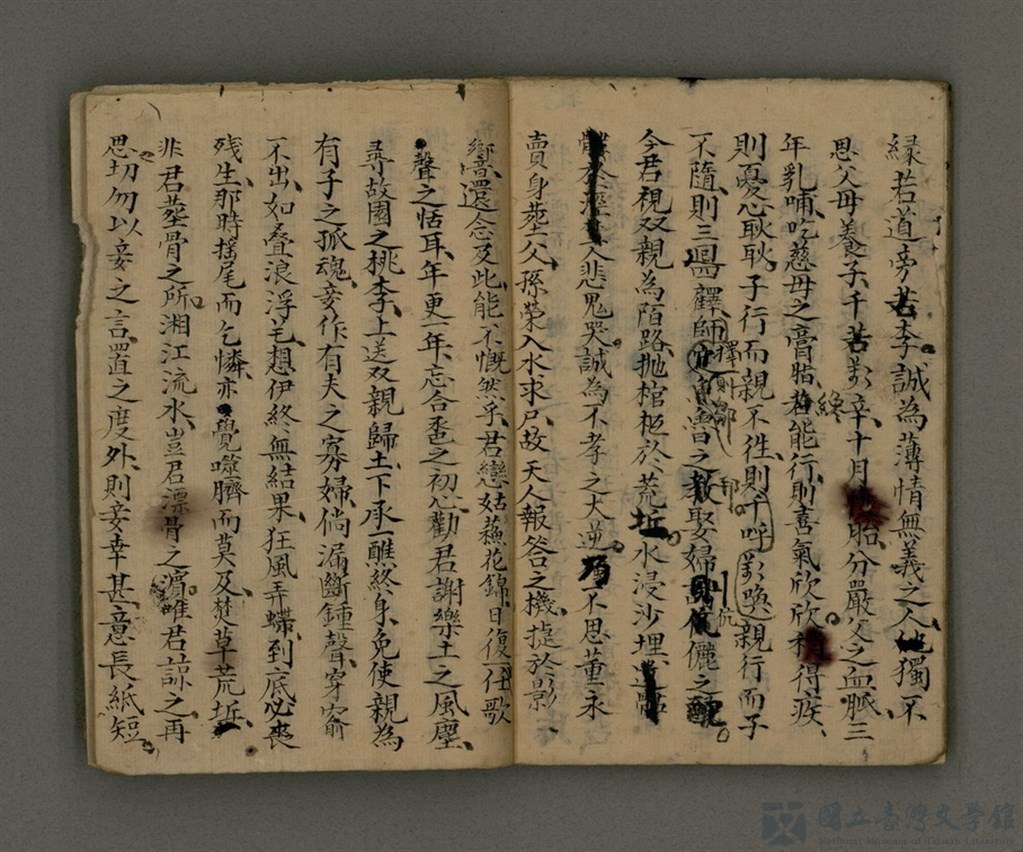 緣若道旁苦李誠為薄情無義之人他獨不
思父母養子千苦萬辛十月胎分嚴父之血脈三
年乳哺吃慈母之膏脂終能行則喜氣欣欣稍得疾
則憂心耿耿子行而親不徃則千呼萬喚親行而子
不隨則三思擇師則鄒孟之教娶婦則伉儷之
今君視双親為陌路抛棺柩於荒坵水浸沙埋
人悲鬼哭誠為不孝之大逆乃不思董永
賣身塟父孫榮入水求尸故天人報答之機捷於影
響言還念及此能不慨然乎君戀姑蘓花錦日復一任歌
聲之恬耳年更一年忘合卺之初心勸君謝樂土之風塵
尋故園之桃李上送双親歸土下承一醮終身免使親為
有子之孤魂妾作有夫之寡婦倘漏斷鍾聲穿窬
不出如叠浪浮毛想伊終無結果狂風弄蝶到底必喪
残生那時搖尾而乞憐亦覺噬臍而莫及焚草荒坵
非君塟骨之所湘江流水豈君漂骨之濱惟君諒之再
思切勿以妾之言置之度外則妾幸甚意長紙短
國立臺灣文學館
National Museum of Taiwan Literature